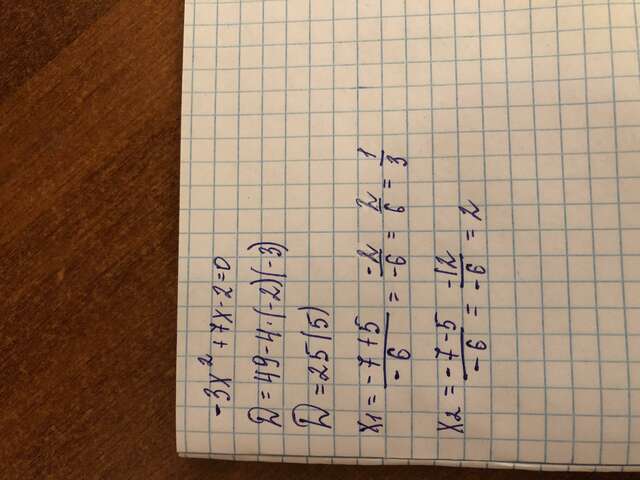 -3x² + 7x - 2 = 0
D = 49 - 4 · (-2)(-3)
D = 25 (5)
x₁ = (-7 + 5)/(-6) = (-2)/(-6) = 2/6 = 1/3
x₂ = (-7 - 5)/(-6) = (-12)/(-6) = 2